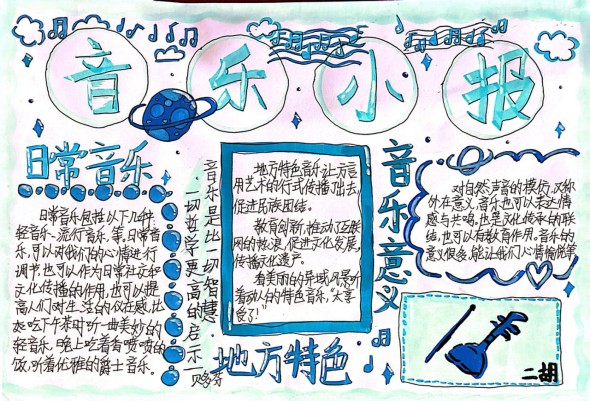 音乐小报
日常音乐
日常音乐包括以下几种
轻音乐、流行音乐,等,日常音
乐,可以对我们的心情进行
调节也可以作为日常社交和
文化传播的作用,也可以提
高人们对生活的仪式感,比
如吃下午茶时听一曲美妙的
轻音乐,晚上吃着香喷喷的
饭,听着优雅的爵士音乐。
音乐是比一切智慧、
一切哲学更高的启示
贝多芬
地方特色音乐让方言
用艺术的形式传播了出去,
促进民族团结。
教育创新,推动了互联
网的热浪,促进文化发展,
传播文化遗产。
看美丽的异域风景听
着动人的特色音乐,“太享
受了!”
地方特色
音乐意义
对自然声音的模仿,又称
外在意义,音乐也可以表达情
感与共鸣,也是文化传承的联
结,也可以有教育作用,音乐的
意义很多,能让我们心情愉悦
二胡